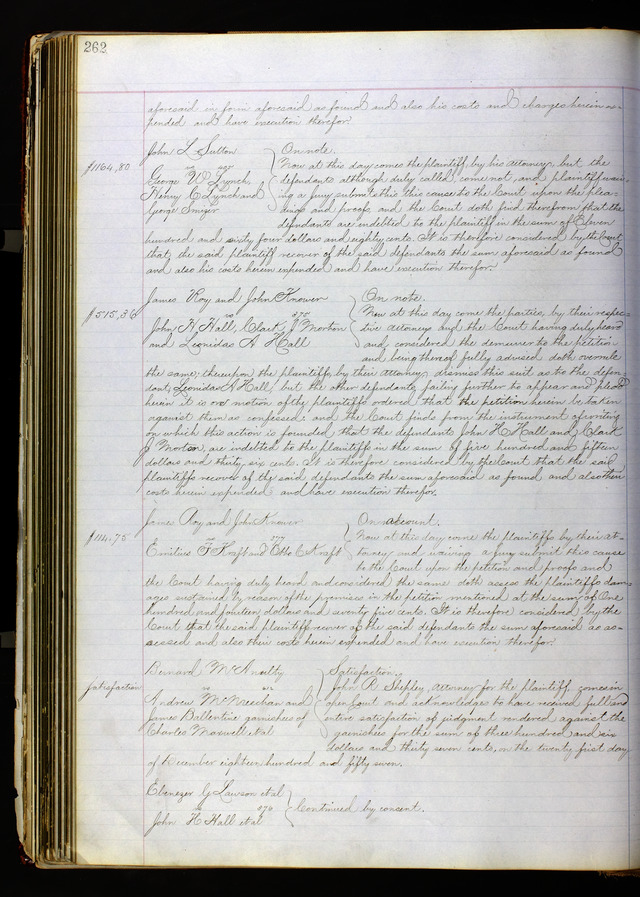 262
aforesaid in form aforesaid as found and also his costs and charges herein ex-
pended and have execution therefor.
John L Sutton On note.
$1164,80 Now at this day comes the plaintiff, by his attorney, but the
George W Lynch, defendants although duly called, come not, and plaintiff waiv
Henry C Lynch and ing a jury submits this cause to the Court upon the plea-
George Smizer dings and proofs, and the Court doth find therefrom that the
defendants are indebted to the plaintiff in the sum of Eleven
hundred and sixty four dollars and eighty cents. It is therefore considered by the Court
that the said plaintiff recover of the said defendants the sum aforesaid as found
and also his costs herein expended and have execution therefor.
James Roy and John Knower On note.
$515,36 vs Now at this day come the parties, by their respec-
John H Hall, Clark J Morton tive attorneys and the Court having duly heard
and Leonidas A Hall and considered the demurrer to the petition
and being thereof fully advised doth overrule
the same, thereupon the plaintiffs, by their attorney, dismiss this suit as to the defen-
dant, Leonidas A Hall, but the other defendants, failing further to appear and plead
herein it is on motion of the plaintiffs ordered that the petition herein be taken
against them as confessed: and the Court finds from the instrument of writing
on which this action is founded, that the defendants John H Hall and Clark
J Morton, are indebted to the plaintiffs in the sum of five hundred and fifteen
dollars and thirty six cents. It is therefore considered by the Court that the said
plaintiffs recover of the said defendants the sum aforesaid as found and also their
costs herein expended and have execution therefor.
James Roy and John Knower On account.
$114,75 vs 377 Now at this day come the plaintiffs by their at-
Emilius F Kraft and Otto C Kraft torney and waiving a jury submit this cause
to the Court upon the petition and proofs and
the Court having duly heard and considered the same doth assess the plaintiffs dam
ages sustained by reason of the premises in the petition mentioned at the sum of One
hundred and fourteen dollars and seventy five cents. It is therefore considered by the
Court that the said plaintiff recover of the said defendants the sum aforesaid as as-
sessed and also their costs herein expended and have execution therefor.
Bernard McAnulty Satisfaction.
Satisfaction vs John R Shepley, attorney for the plaintiff, comes in
Andrew McMeechan and open Court and acknowledges to have received full and
James Ballentine garnishees of entire satisfaction of judgment rendered against the
Charles Maxwell et al garnishees for the sum of three hundred and six
dollars and thirty seven cents, on the twenty first day
of December eighteen hundred and fifty seven.
Ebenezer G Lawson et al
vs Continued by consent.
John H Hall et al